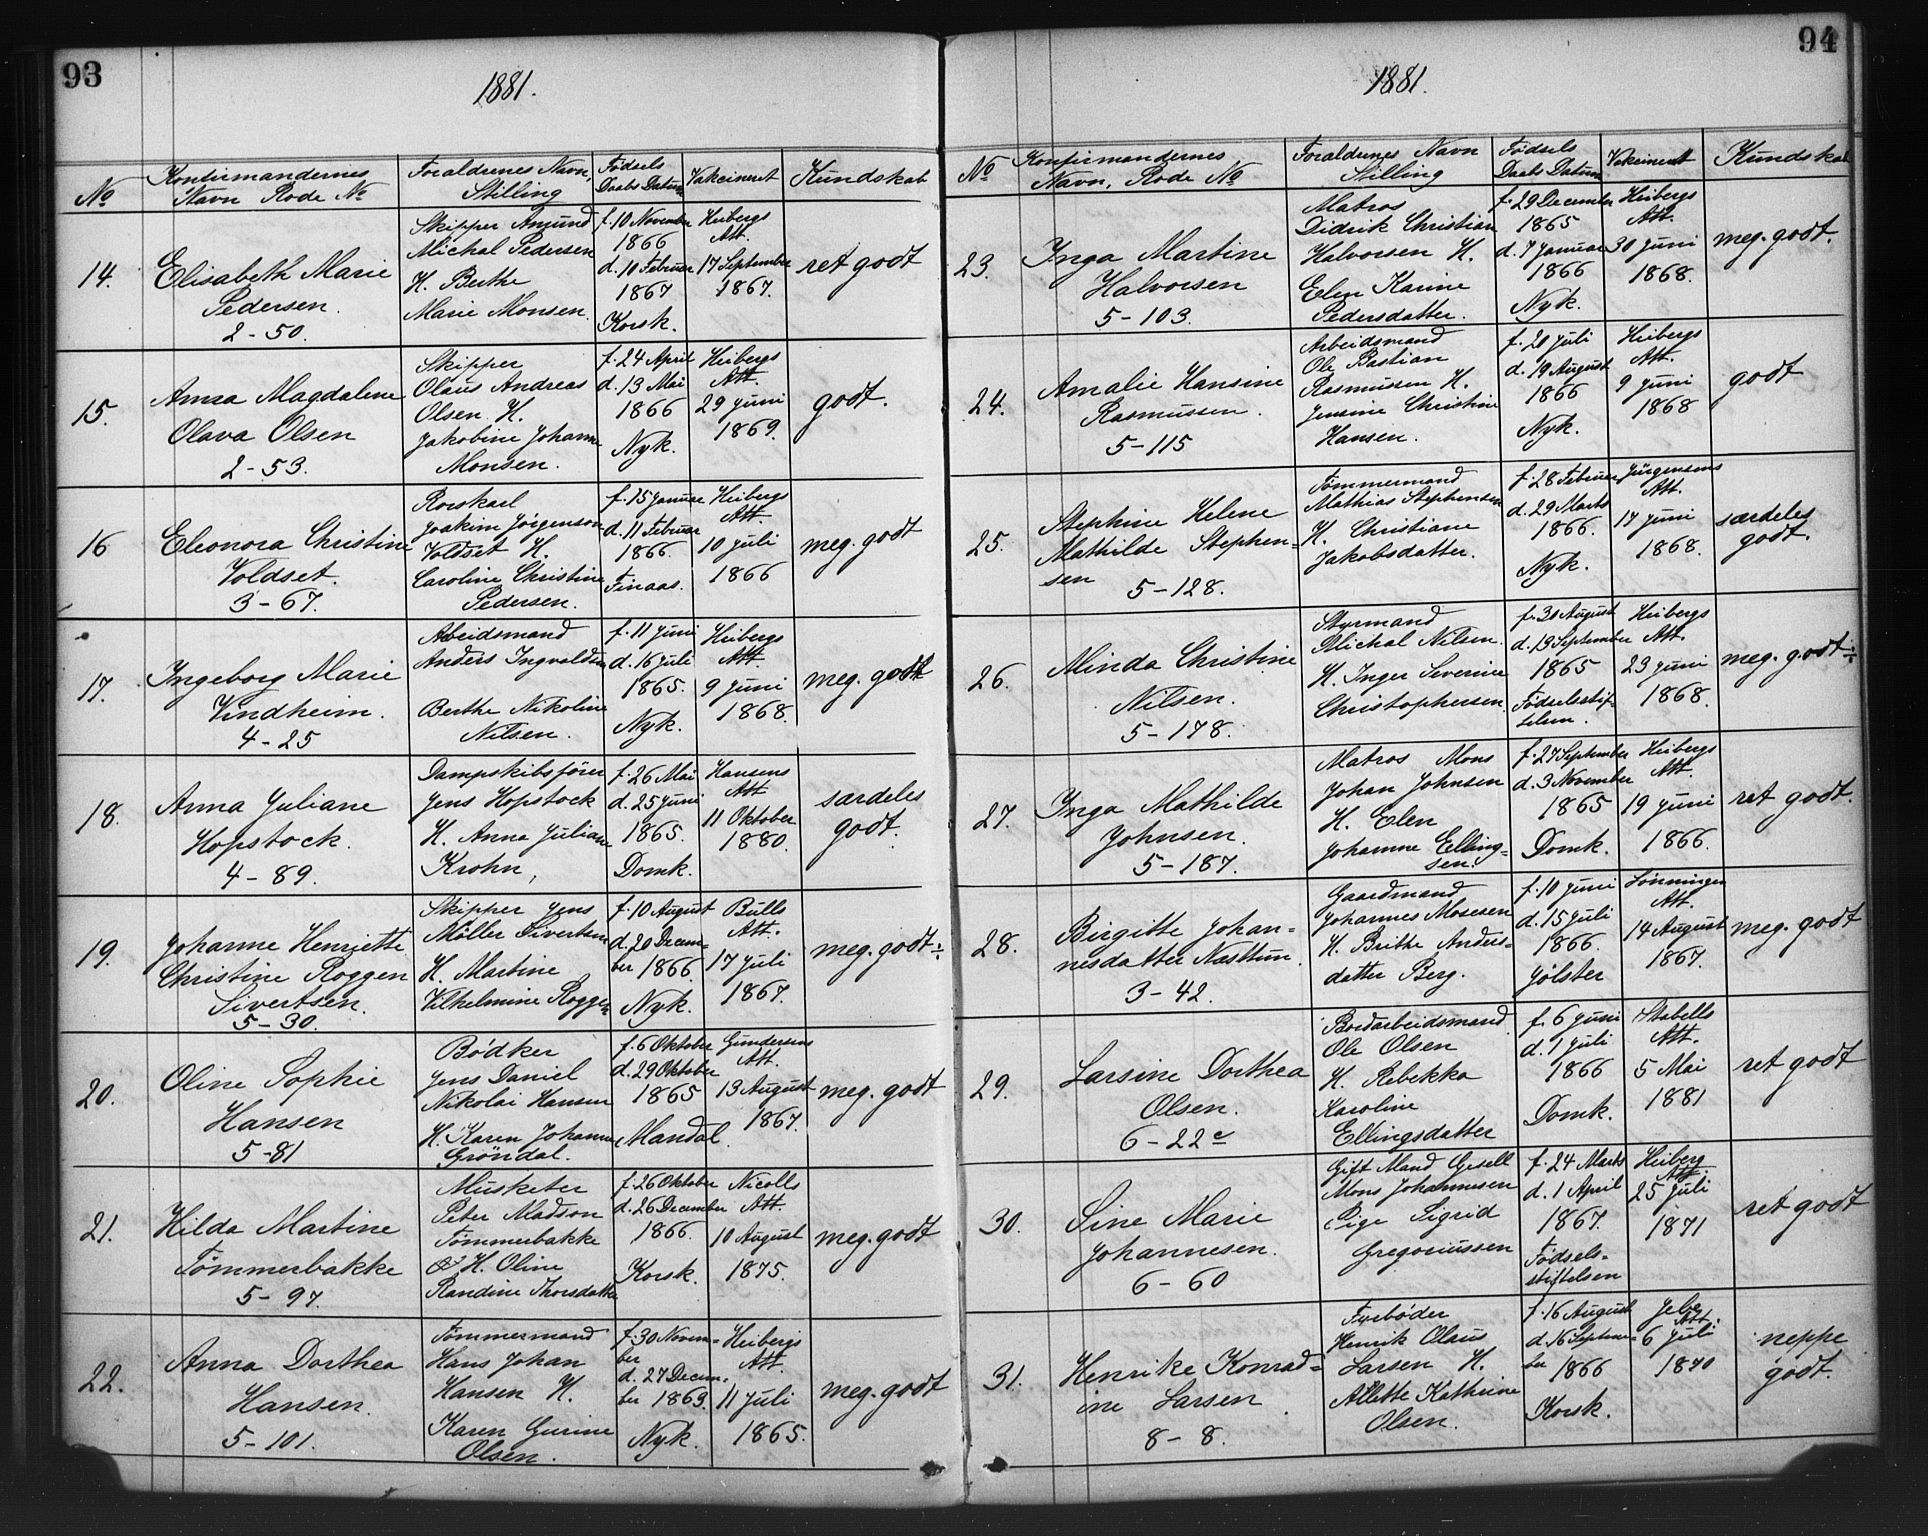 93
1881.
No
Konfirmandernes
Navn Rode No
Forældrenes Navn,
Stilling
Fødsels
Daabs Datum
Vakcineret
Kundskab
14.
Elisabeth Marie
Pedersen.
2-50.
Skipper Amund
Michal Pedersen
H. Berthe
Marie Monsen.
f. 10 November
1866
d. 10 Februar
1867
Korsk.
Heibergs
Att.
17 September
1867.
ret godt
15.
Anna Magdalene
Olava Olsen
2-53.
Skipper
Olaus Andreas
Olsen H.
Jakobine Johanne
Monsen.
f. 24 April
d. 13 Mai
1866
Nyk.
Heibergs
Att.
29 Juni
1869.
godt.
16
Eleonora Christine
Voldset.
3-67.
Rorskarl
Joakim Jörgensen
Voldset H.
Caroline Christine
Pedersen.
f. 15 Januar
d. 11 Februar
1866.
Finaas.
Heibergs
Att.
10 Juli
1866
meg. godt
17.
Ingeborg Marie
Vindheim.
4-25
Arbeidsmand
Anders Ingvaldsen
Berthe Nikoline
Nilsen.
f. 11 Juni
d. 16 Juli
1865.
Nyk.
Heibergs
Att.
9 Juni
1868.
meg. godt
18.
Anna Juliane
Hopstock.
4-89.
Dampskibsfören
Jens Hopstock
H. Anna Juliane
Krohn,
f. 26 Mai
d. 25 Juni
1865.
Domk.
Hansens
Att.
11 Oktober
1880.
særdeles
godt.
19.
Johanne Henriette
Christine Roggen
Sivertsen.
5-30.
Skipper Jens
Möller Sivertsen
H. Martine
Vilhelmine Roggen
f. 10 August
d. 20 Decem-
ber 1866
Nyk.
Bulls
Att.
17 Juli
1867.
meg. godt ÷
20.
Oline Sophie
Hansen
5-81
Bödker
Jens Daniel
Nikolai Hansen
H. Karen Johanne
Gröndal.
f. 6 Oktober
d. 29 Oktober
1865
Mandal.
Gundersens
Att.
13 August
1867.
meg. godt
21.
Hilda Martine
Tömmerbakke
5-97.
Musketer
Peter Madson
Tömmerbakke
& H. Oline
Randine Thorsdatter
f. 26 Oktober
d. 26 December
1866.
Korsk.
Nicolls
Att.
10 August
1875.
meg. godt
22.
Anna Dorthea
Hansen.
5-101.
Tömmermand
Hans Johan
Hansen H.
Karen Gurine
Olsen.
f. 30 Novem-
ber
d. 27 Decem-
ber 1863.
Nyk.
Heibergs
Att.
11 Juli
1865.
meg. godt
94
1881.
No
Konfirmandernes
Navn, Rode No
Forældrenes Navn
Stilling
Fødsels
Daabs Datum
Vakcineret
Kundskab
23.
Inga Martine
Halvorsen
5-103.
Matros
Didrik Christian
Halvorsen H.
Elen Karine
Pedersdatter.
f. 29 December
1865
d. 7 Januar
1866
Nyk.
Heibergs
Att.
30 Juni
1868.
meg. godt.
24.
Amalie Hansine
Rasmussen.
5-115
Arbeidsmand
Ole Bastian
Rasmussen H.
Jensine Christine
Hansen.
f. 20 Juli
d. 19 August
1866
Nyk.
Heibergs
Att.
9 Juni
1868
godt
25.
Stephine Helene
Mathilde Stephen=
sen
5-128.
Tömmermand
Mathias Stephensen
H. Christiane
Jakobsdatter.
f. 28 Februar
d. 29 Marts
1866.
Nyk.
Jürgensens
Att.
17 Juni
1868.
særdeles
godt.
26.
Minda Christine
Nilsen.
5-178.
Styrmand
Michal Nilsen.
H. Inger Severine
Christophersen.
f. 30 August
d. 13 September
1865
Födselsstif-
telsen.
Heibergs
Att.
23 Juni
1868.
meg. godt ÷
27.
Inga Mathilde
Johnsen.
5-187.
Matros Mons
Johan Johnsen
H. Elen
Johanne Elling=
sen.
f. 27 September
d. 3 November
1865
Domk.
Heibergs
Att.
19 Juni
1866.
ret godt.
28.
Birgitte Johan=
nesdatter Næsttun.
3-42.
Gaardmand
Johannes Mosesen
H. Brithe Anders=
datter Berg.
f. 10 Juni
d. 15 Juli
1866.
Jölster
Lønningen
Att.
14 August
1867.
meg. godt
29.
Larsine Dorthea
Olsen.
6-22c
Bordarbeidsmand
Ole Olsen
H. Rebekka
Karoline
Ellingsdatter
f. 6 Juni
d. 1 Juli
1866
Domk.
Stabells
Att.
5 Mai
1881
ret godt
30.
Sine Marie
Johannesen.
6-60
Gift Mand Gesell
Mons Johannesen
Pige Sigrid
Gregoriussen
f. 24 Marts
d. 1 April
1867.
Födsels=
stiftelsen
Heiberg
Att.
25 Juli
1871
ret godt
31.
Henrike Konrad=
ine Larsen.
8-8.
Fyrböder
Henrik Olaus
Larsen H.
Allette Kathrine
Olsen.
f. 16 August
d. 16 Septem-
ber 1866
Korsk.
Att.
6 Juli
1870
neppe
godt.